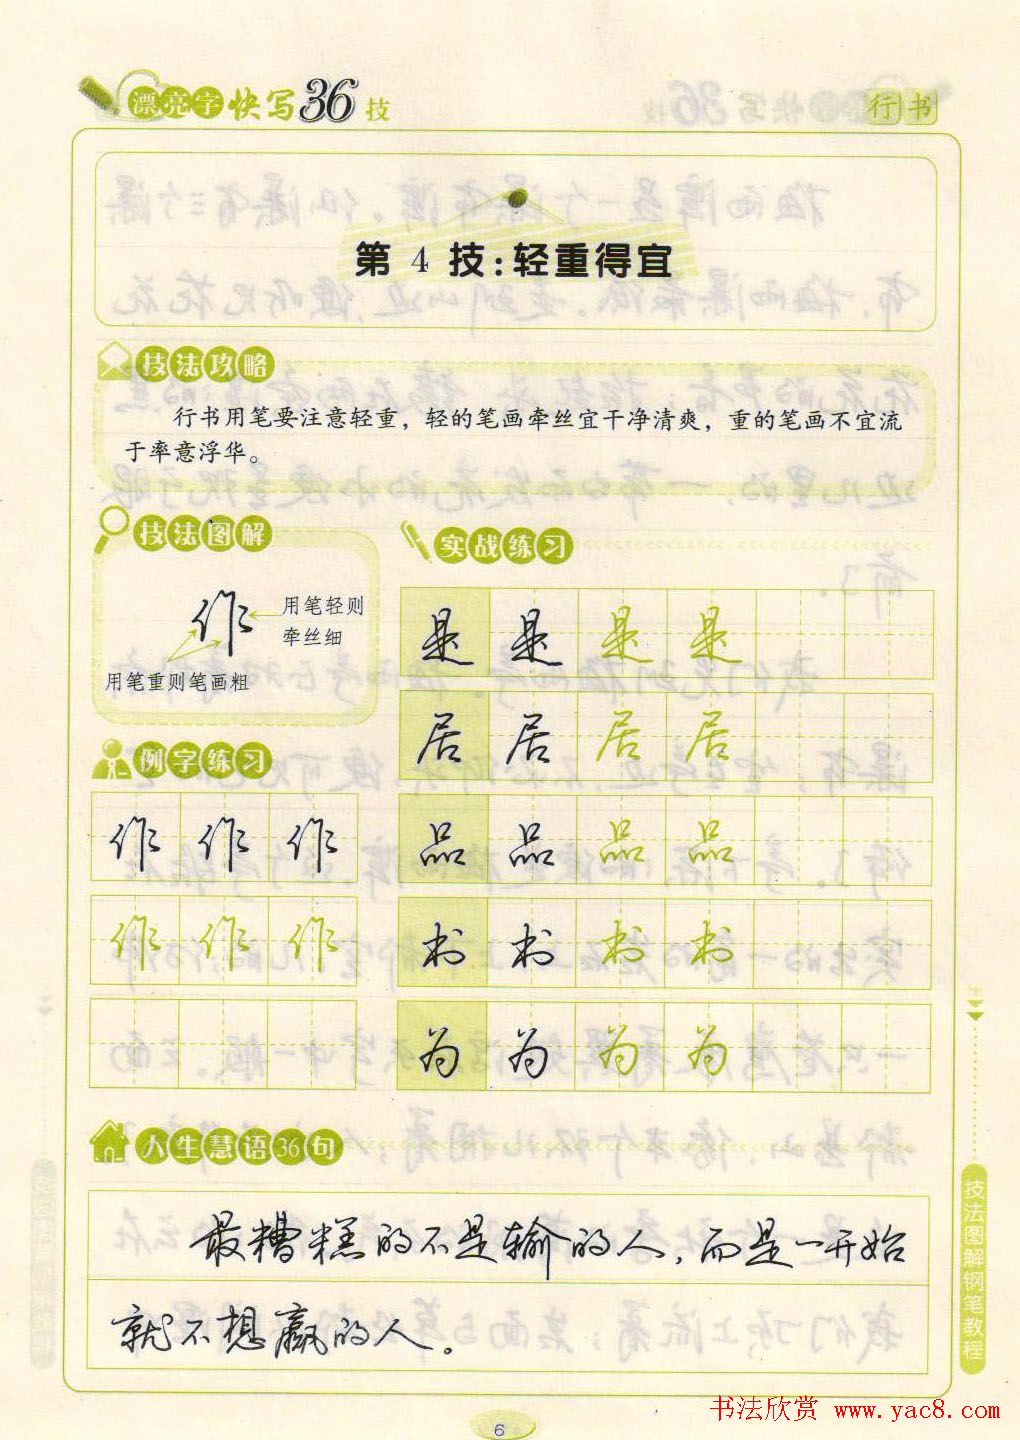 漂亮字快写36技
行书
第4技:轻重得宜
技法攻略
行书用笔要注意轻重，轻的笔画牵丝宜干净清爽，重的笔画不宜流
于率意浮华。
技法图解
作
用笔轻则
牵丝细
用笔重则笔画粗
例字练习
作 作 作
作 作 作
实战练习
是 是 是 是
居 居 居 居
品 品 品 品
为 为 为 为
人生慧语36句
最糟糕的不是输的人，而是一开始
就不想赢的人。
技法图解钢笔教程
6
书法欣赏 www.yac8.com